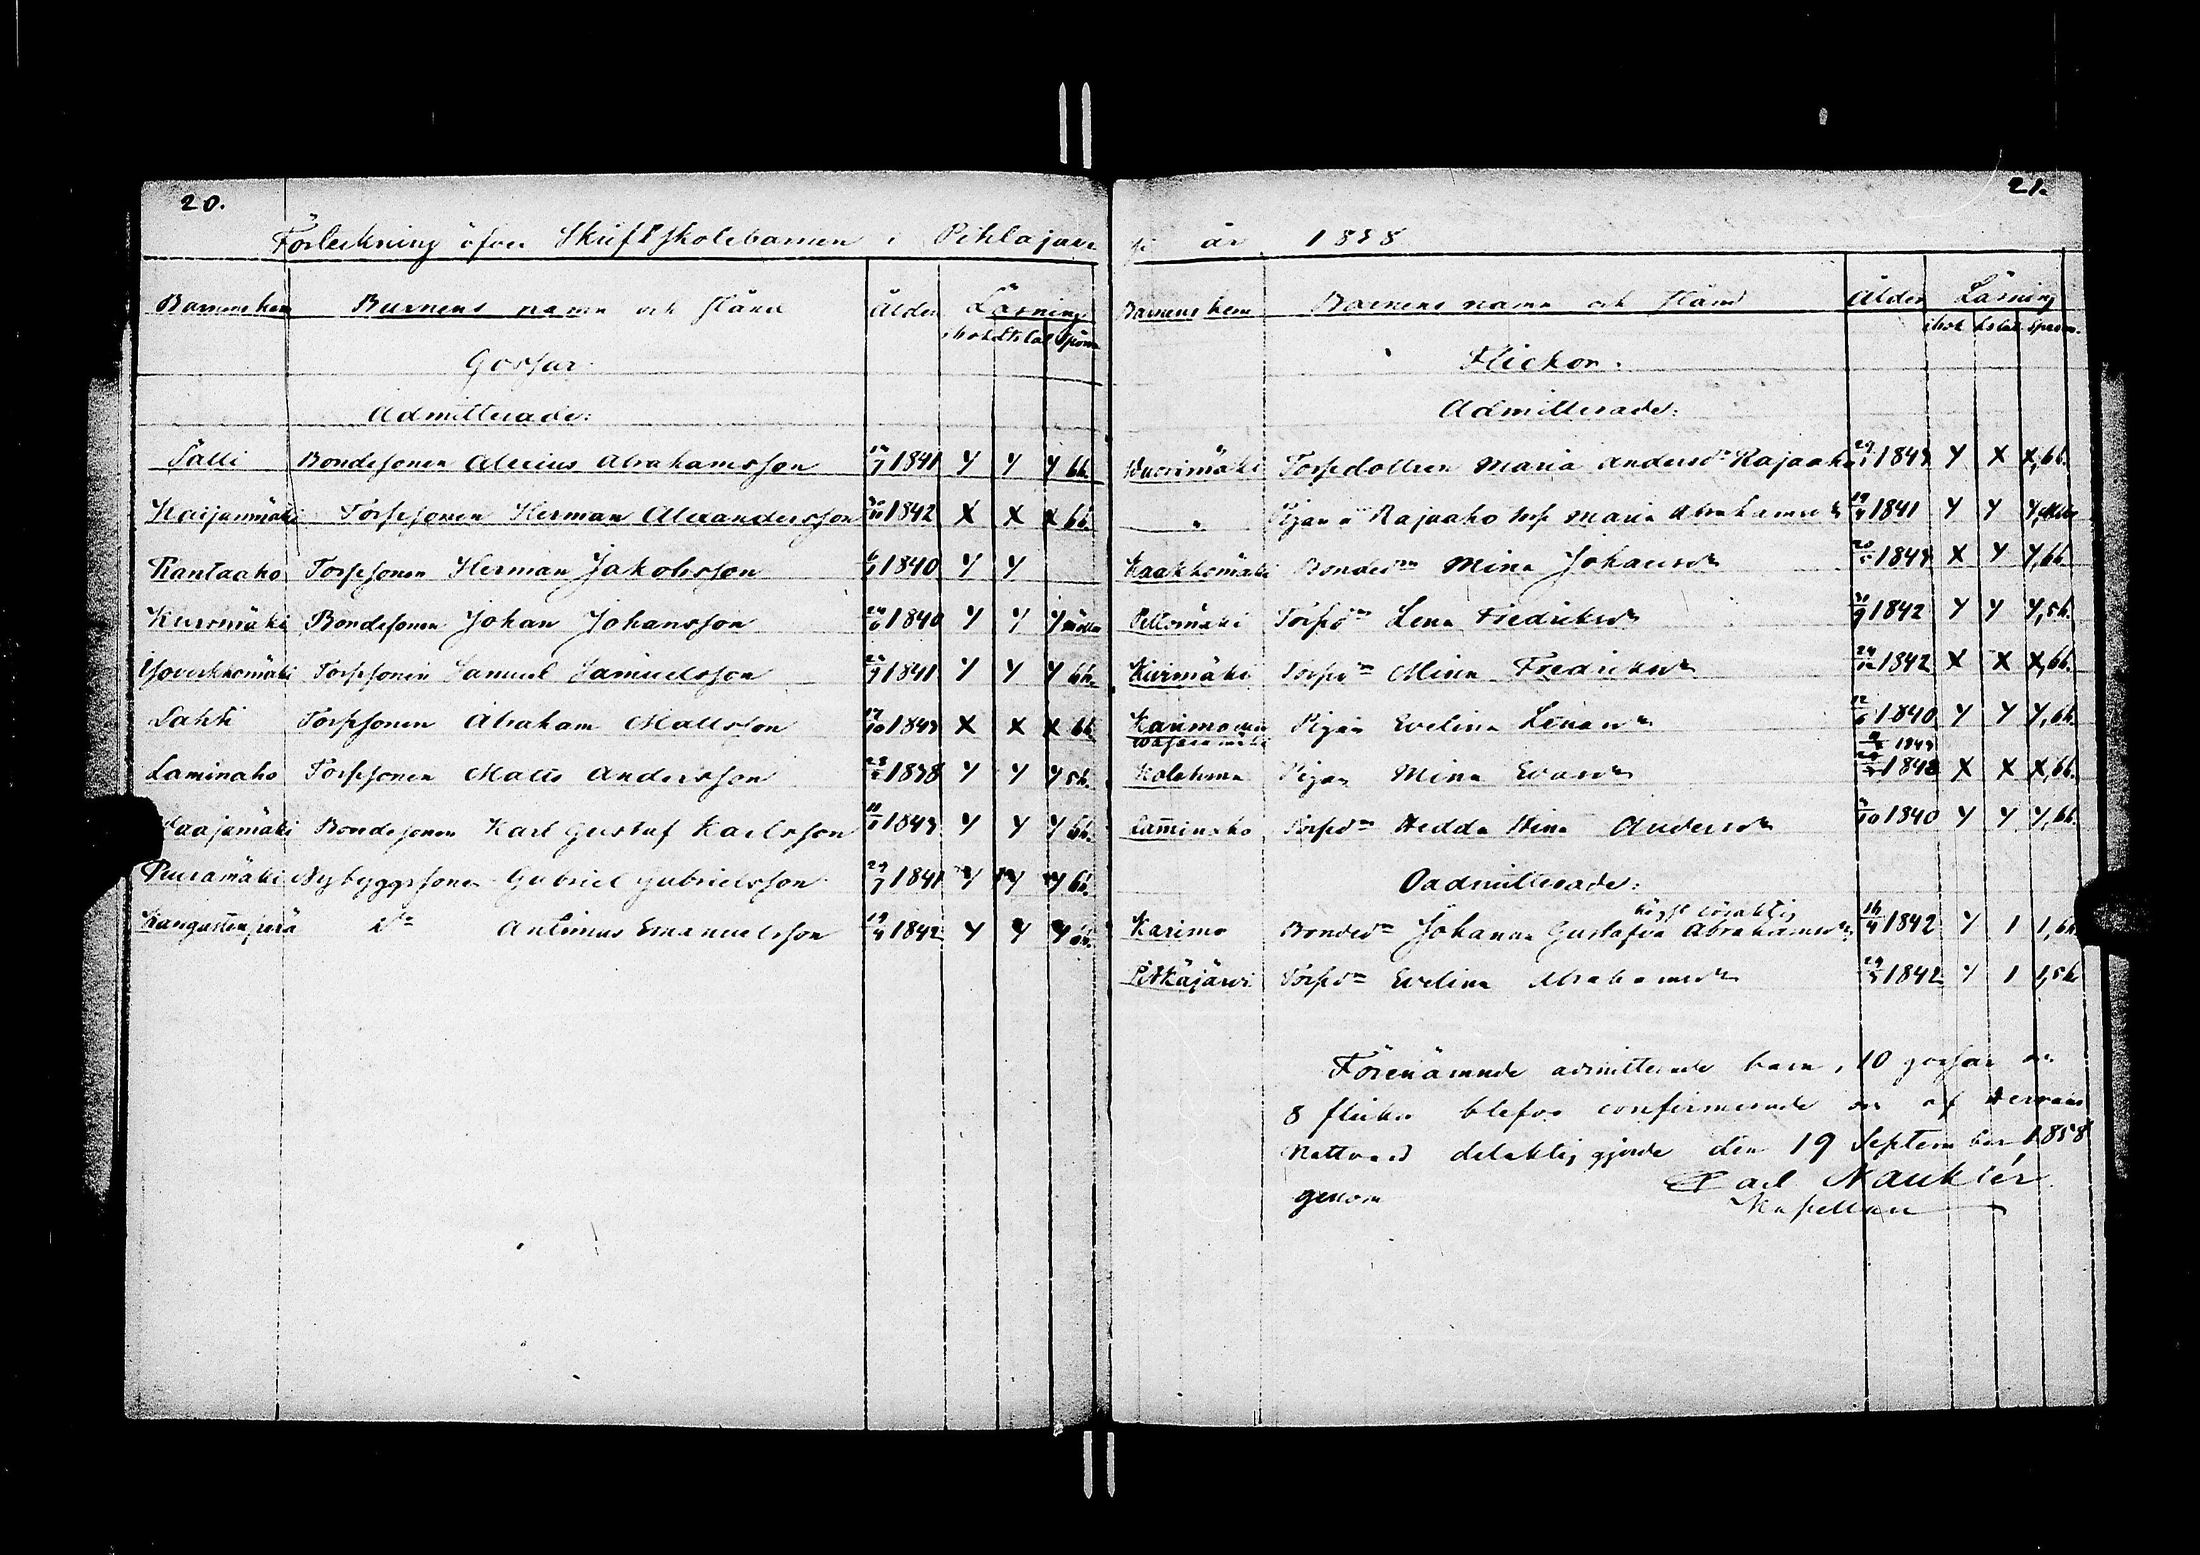 20.
Förteckning öfver Skriftskolebarnen i Pihlajave
Barnens hem Barnens namn och stånd Ålder Läsning
i bok utstal spörsm.
Gossar
Admitterade:
Sälli Bondesonen Alexius Abrahamsson 1841 Y Y Y bb.
Karjanmäki Torpsonen Herman Alexandersson 1842 X X X bb.
Rantaaho Torpsonen Herman Jakobsson 1840 Y Y
Kurvmäki Bondesonen Johan Johansson 1840 Y Y Y
Torpsonen Samuel Samuelsson 1841 Y Y Y bb.
Lahti Torpsonen Abraham Mattsson 17/10 1843 X X X bb.
Laminaho Torpsonen Matts Andersson 1838 Y Y Y sb.
Bondesonen Karl Gustaf Karlsson 1843 Y Y Y bb.
Peuramäki Nybyggssonen Gabriel Gabrielsson 29/7 1841 Y Y Y bb.
Kangustenperä do Antimus Emanuelsson 19/4 1842 Y Y Y
21.
si år 1858
Barnens hem Barnens namn och stånd Ålder Läsning
i bok utstal spörsm.
Flickor.
Admitterade:
Wuorimäki Torpdottren Maria Andersdr Rajaaho 1843 Y X X, bb.
" Pigan i Rajaaho torp Maria Abrahamsdr 1841 Y Y Y,
Kaakkomäki Bonded:n Mina Johansdr 1843 X Y Y, bb.
Peltomäki Torpd:n Lena Fredriksdr 1842 Y Y Y, sb.
Kurimäki Torpd:n Mina Fredriksdr 24/12 1842 X X X, bb.
Karimo Pigan Evelina 12/6 1840 Y Y Y, bb.
1843
Kolehma Pigan Mina 1848 X X X, bb.
Laminaho Torpd:n Hedda Stina Andersdr 1840 Y Y Y, bb.
Oadmitterade:
högst
Karimo Bonded:n Johanna Gustafva Abrahamsdr 16/4 1842 Y 1 1, bb.
Pitkäjärvi Torpd:n Evelina Abrahamsdr 1842 Y 1 1, sb
Förenämnde admitterade barn, 10 gossar och
8 flickor blefvo confirmerade och af Herrans
Nattvard delaktig gjorde den 19 September 1858
genom Carl Nauklér
Kapellan